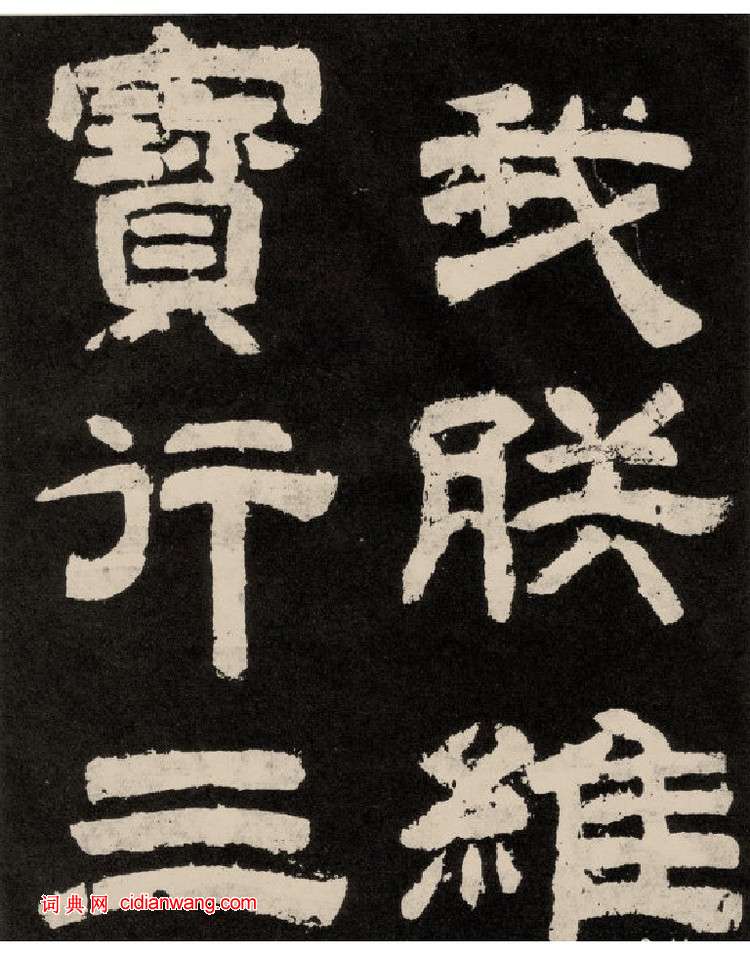 我朕維
寶行三
词典网 cidianwang.com